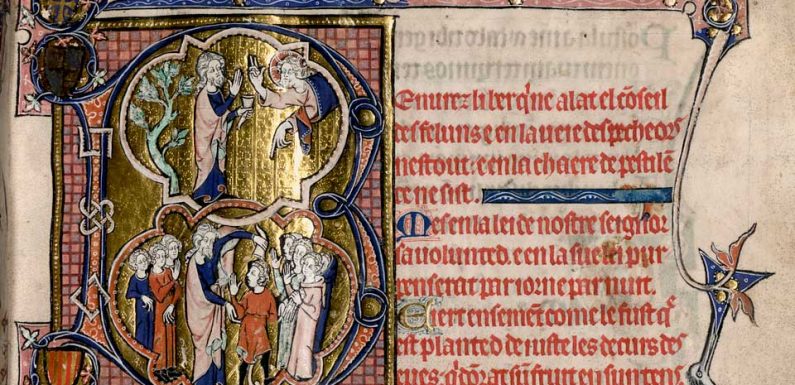 Enurez li ber q̉ ne alat el cōseil
des feluns e en la ueie des pecheors
nestout: e en la chaere de pestilē
ce ne sist.
Mes en la lei de nostre seignor
sa uolunted. e en la sue lei pur
penserat par iorn e par nuit.
E iert ensement come le fust q̉
est planted de iuste les decurs des
eues. q̉ dorat sun fruit en sun tens